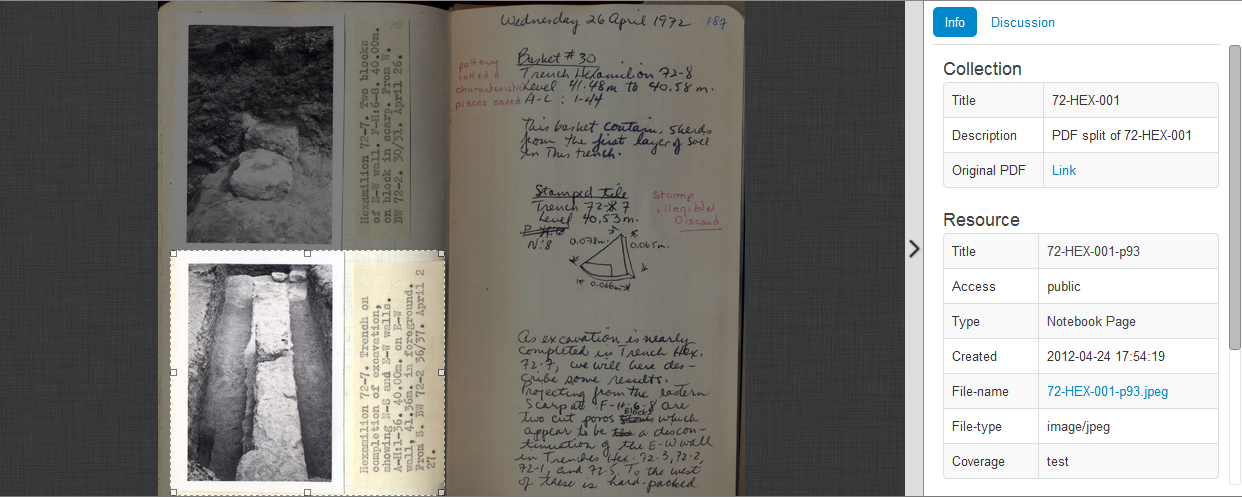 Hexamilion 72-7. Two blocks
of E-W wall. F-H:6-8. 40.00m.
on block in scarp. From W.
BW 72-2. 30/31. April 26.
Hexamilion 72-7. Trench on
completion of excavation,
showing N-S and E-W walls.
A-H:1-36. 40.00m. on E-W
wall, 41.36m. in foreground.
From S. BW 72-2 36/37. April 2
27.
Wednesday 26 April 1972 187
Basket # 30
Trench Hexamilion 72-8
Level 41.48m to 40.58 m.
A-L : 1-44
pottery
characteristic
pieces saved
This basket contains sherds
from the first layer of soil
in this trench.
Stamped tile
Trench 72-7
Level 40.53m.
N:8
Stamp
illegible
Discard
0.078m.
0.065m.
0.066m
As excavation is nearly
completed in Trench Hex.
72-7, we will here des-
cribe some results.
Projecting from the eastern
Scarp at F-H:6-8 are
two cut poros Blocks which
appear to be a discon-
tinuation of the E-W wall
in Trenches Hex. 72-3, 72-2,
72-1, and 72-5. To the west
of these is hard-packed
Info
Discussion
Collection
Title 72-HEX-001
Description PDF split of 72-HEX-001
Original PDF Link
Resource
Title 72-HEX-001-p93
Access public
Type Notebook Page
Created 2012-04-24 17:54:19
File-name 72-HEX-001-p93.jpeg
File-type image/jpeg
Coverage test